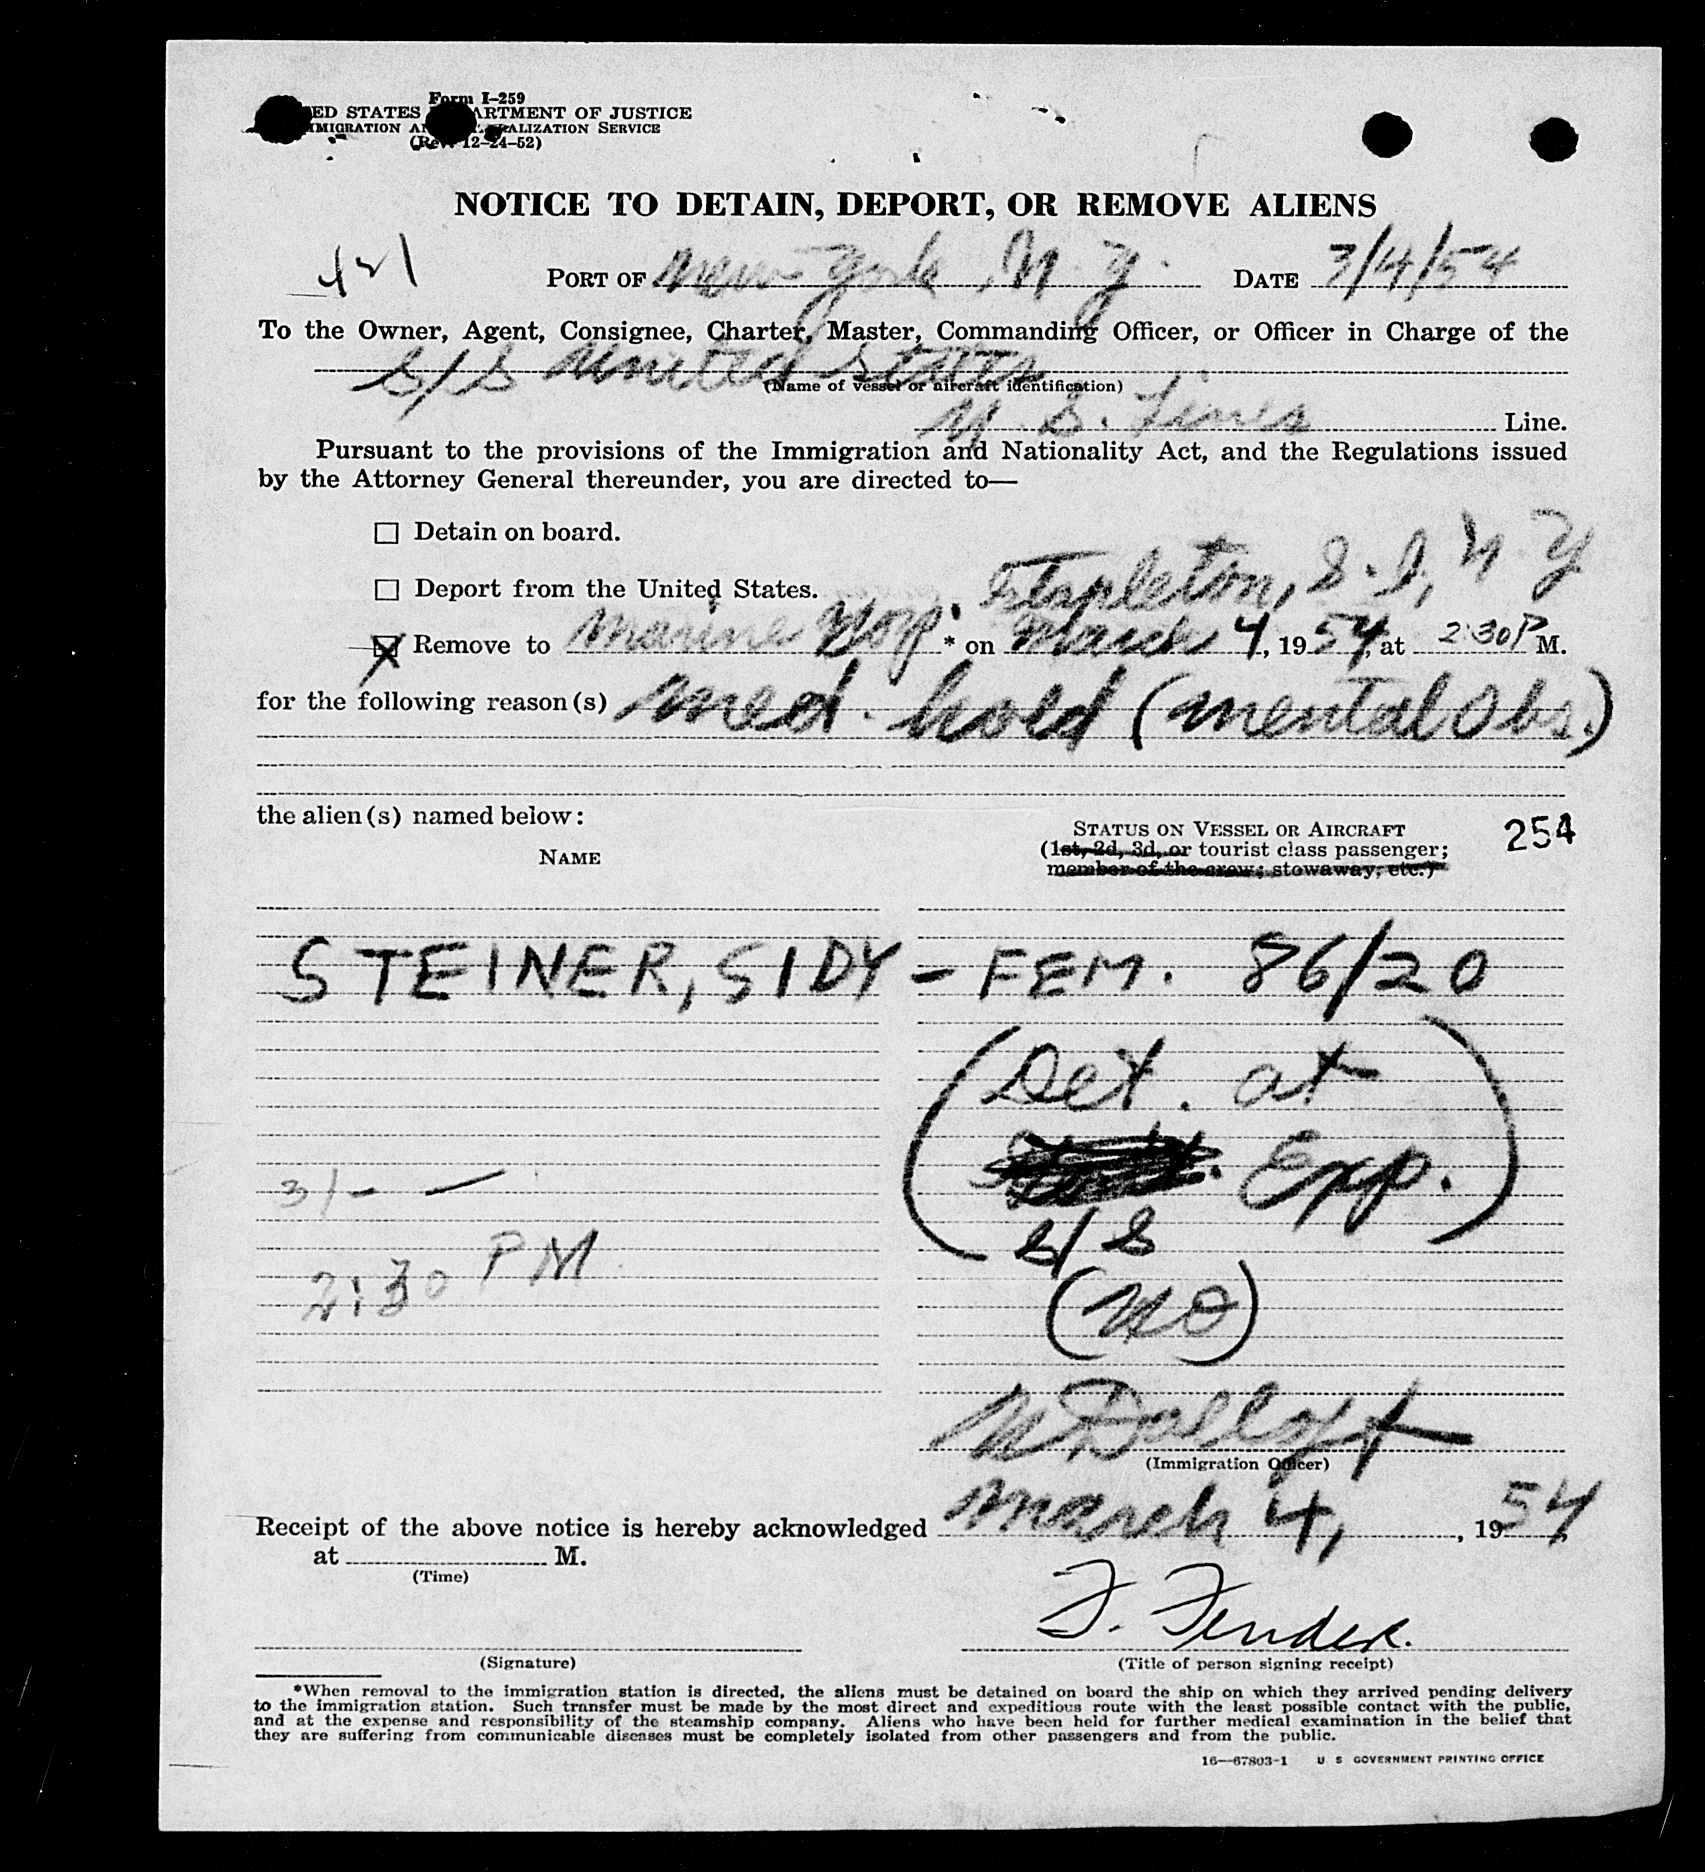 Form I-259
ED STATES DEPARTMENT OF JUSTICE
IMMIGRATION AND NATURALIZATION SERVICE
(Rev. 12-24-52)
NOTICE TO DETAIN, DEPORT, OR REMOVE ALIENS
421
PORT OF New York, N.Y. DATE 3/4/54
To the Owner, Agent, Consignee, Charter, Master, Commanding Officer, or Officer in Charge of the
S/S United States
(Name of vessel or aircraft identification)
U.S. Lines Line.
Pursuant to the provisions of the Immigration and Nationality Act, and the Regulations issued
by the Attorney General thereunder, you are directed to—
☐ Detain on board.
☐ Deport from the United States.
Stapleton, S.I, N.Y
☒ Remove to Marine Hosp.* on March 4, 1954, at 2:30 P M.
for the following reason(s) med. hold (mental Obs.)
the alien(s) named below:
254
NAME
STATUS ON VESSEL OR AIRCRAFT
(1st, 2d, 3d, or tourist class passenger;
member of the crew; stowaway, etc.)
STEINER, SIDY - FEM. 86/20
(Det. at
Exp.)
3/- —
S/S
2:30 PM
(NO)
(Immigration Officer)
Receipt of the above notice is hereby acknowledged March 4, , 1954,
at M.
(Time)
F. Fender.
(Signature)
(Title of person signing receipt)
*When removal to the immigration station is directed, the aliens must be detained on board the ship on which they arrived pending delivery
to the immigration station. Such transfer must be made by the most direct and expeditious route with the least possible contact with the public,
and at the expense and responsibility of the steamship company. Aliens who have been held for further medical examination in the belief that
they are suffering from communicable diseases must be completely isolated from other passengers and from the public.
16—67803-1 U S GOVERNMENT PRINTING OFFICE